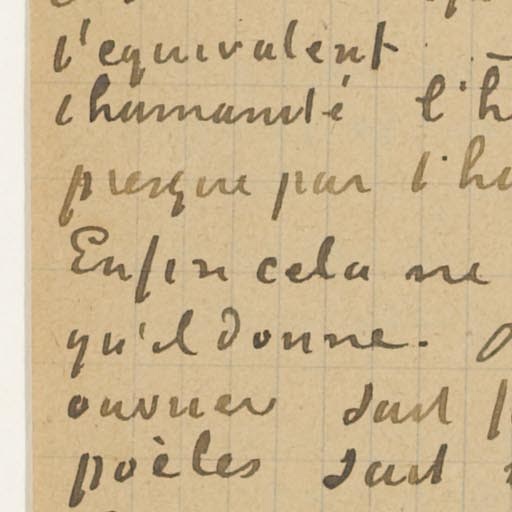 l'equivalent
l'humanité l'h
presque par l'hu
Enfin cela ne
qu'il donne.
ouvrier sait
poèles sait